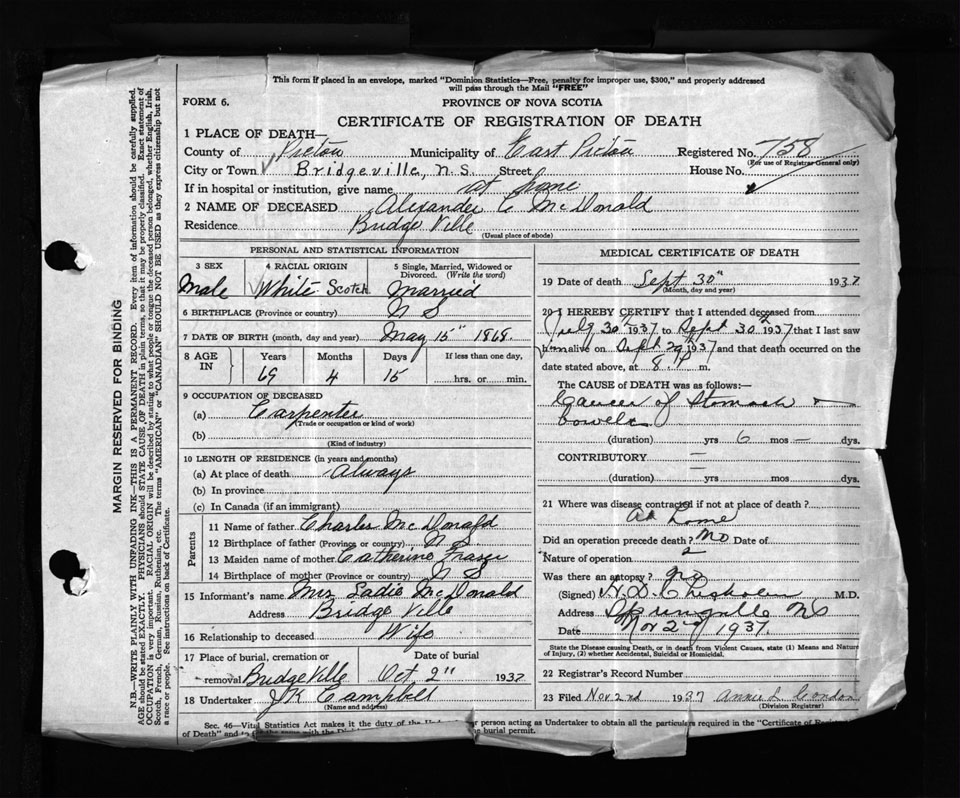 This form if placed in an envelope, marked "Dominion Statistics—Free, penalty for improper use, $300," and properly addressed
will pass through the Mail "FREE"
FORM 6.
PROVINCE OF NOVA SCOTIA
CERTIFICATE OF REGISTRATION OF DEATH
1 PLACE OF DEATH—
County of Pictou Municipality of East Pictou Registered No. 758
(For use of Registrar General only)
City or Town Bridgeville, N.S. Street House No.
If in hospital or institution, give name at home
2 NAME OF DECEASED Alexander C McDonald
Residence Bridge Ville
(Usual place of abode)
PERSONAL AND STATISTICAL INFORMATION
3 SEX 4 RACIAL ORIGIN 5 Single, Married, Widowed or
Divorced. (Write the word)
Male White Scotch Married
6 BIRTHPLACE (Province or country) N S
7 DATE OF BIRTH (month, day and year) May 15" 1868.
8 AGE IN Years Months Days If less than one day,
69 4 15 hrs. or min.
9 OCCUPATION OF DECEASED
(a) Carpenter
(Trade or occupation or kind of work)
(b)
(Kind of industry)
10 LENGTH OF RESIDENCE (in years and months)
(a) At place of death Always
(b) In province
(c) In Canada (if an immigrant)
Parents
11 Name of father Charles McDonald
12 Birthplace of father (Province or country) N S
13 Maiden name of mother Catherine Fraser
14 Birthplace of mother (Province or country) N S
15 Informant's name Mrs Sadie McDonald
Address Bridge Ville
16 Relationship to deceased Wife
17 Place of burial, cremation or Date of burial
removal Bridge Ville Oct 2" 1937
18 Undertaker J K Campbell
(Name and address)
MEDICAL CERTIFICATE OF DEATH
19 Date of death Sept 30" 1937
(Month, day and year)
20 I HEREBY CERTIFY that I attended deceased from
July 30 1937 to Sept 30 1937 that I last saw
him alive on Sept 29 1937 and that death occurred on the
date stated above, at 8. P m.
The CAUSE OF DEATH was as follows:—
Cancer of Stomach
bowels
(duration) yrs 6 mos — dys.
CONTRIBUTORY —
(duration) — yrs mos. dys.
21 Where was disease contracted if not at place of death?
At home
Did an operation precede death? No Date of
Nature of operation
Was there an autopsy? no
(Signed) Chisholm M.D.
Address Springville NS
Date Nov 2nd 1937.
State the Disease causing Death, or in death from Violent Causes, state (1) Means and Nature
of Injury, (2) whether Accidental, Suicidal or Homicidal.
22 Registrar's Record Number
23 Filed Nov 2nd 1937 Annie L Condon
(Division Registrar)
Sec. 46—Vital Statistics Act makes it the duty of the person acting as Undertaker to obtain all the particulars required in the "Certificate of
of Death" and to burial permit.
MARGIN RESERVED FOR BINDING
N.B.—WRITE PLAINLY WITH UNFADING INK—THIS IS A PERMANENT RECORD. Every item of information should be carefully supplied.
AGE should be stated EXACTLY. PHYSICIANS should STATE CAUSE OF DEATH in plain terms, so that it may be properly classified. Exact statement of
OCCUPATION is very important. RACIAL ORIGIN will be described by stating to what people or tongue the deceased person belonged, whether English, Irish,
Scotch, French, German, Russian, Ruthenian, etc. The terms "AMERICAN" or "CANADIAN" SHOULD NOT BE USED as they express citizenship but not
a race or people. See instructions on back of Certificate.